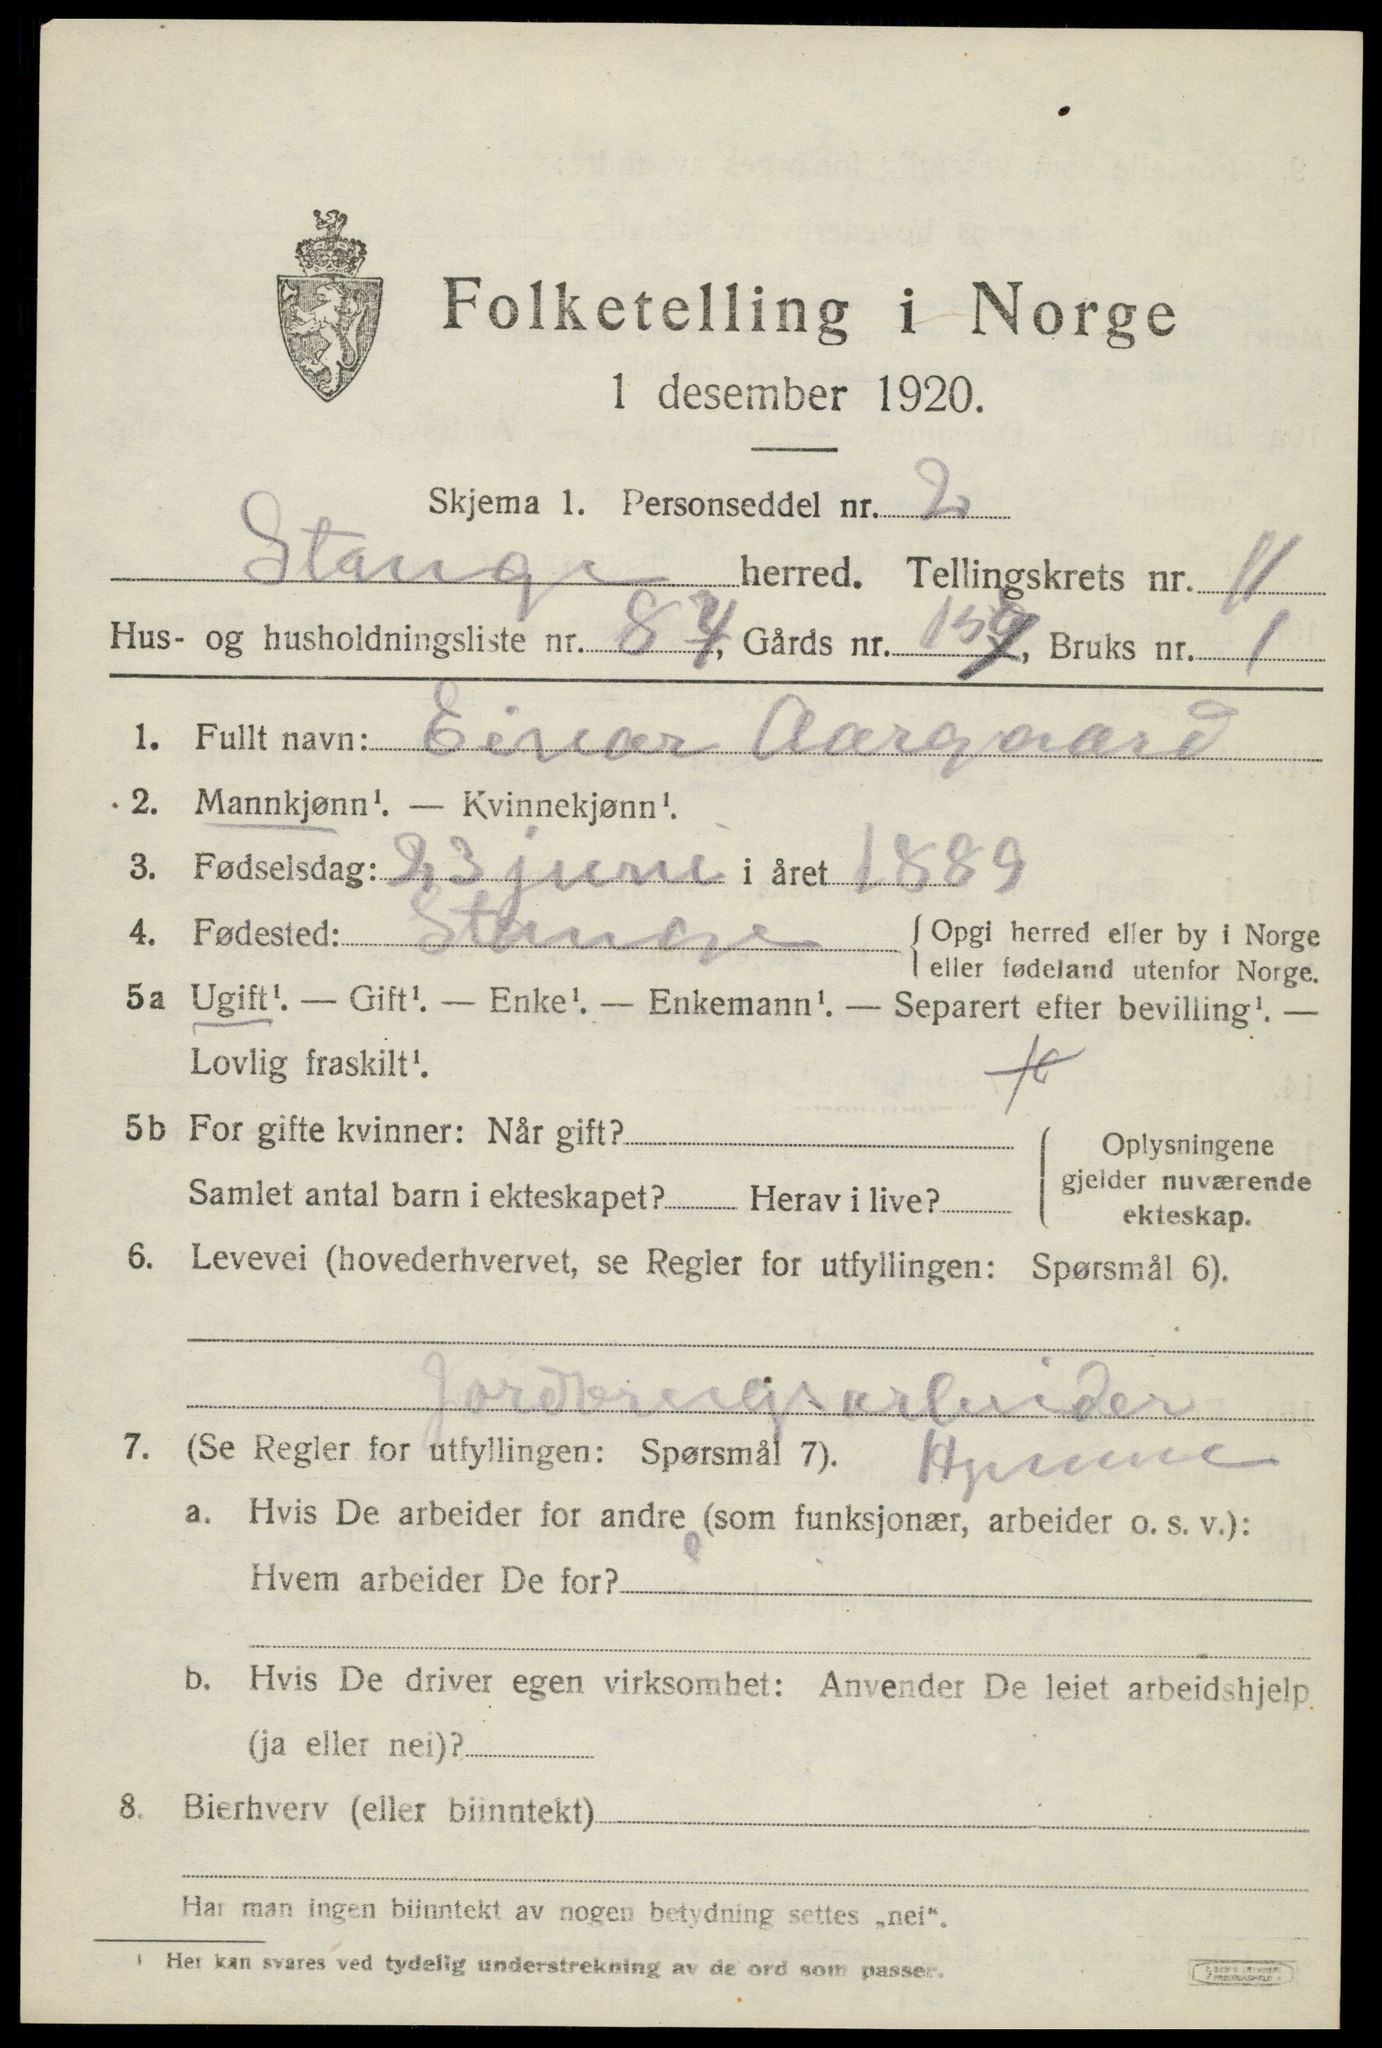 Folketelling i Norge
1 desember 1920.
Skjema 1. Personseddel nr. 2
Stange herred. Tellingskrets nr. 11
Hus- og husholdningsliste nr. 84, Gårds nr. 159, Bruks nr. 1
1. Fullt navn: Einar Aargaard
2. Mannkjønn¹. — Kvinnekjønn¹.
3. Fødselsdag: 23 juni i året 1889
4. Fødested: Stange {Opgi herred eller by i Norge
eller fødeland utenfor Norge.
5a Ugift¹. — Gift¹. — Enke¹. — Enkemann¹. — Separert efter bevilling¹. —
Lovlig fraskilt¹.
5b For gifte kvinner: Når gift?
Samlet antal barn i ekteskapet? Herav i live?
Oplysningene
gjelder nuværende
ekteskap.
6. Levevei (hovederhvervet, se Regler for utfyllingen: Spørsmål 6).
Jordbrugsarbeider
7. (Se Regler for utfyllingen: Spørsmål 7). Hjemme
a. Hvis De arbeider for andre (som funksjonær, arbeider o. s. v.):
Hvem arbeider De for?
b. Hvis De driver egen virksomhet: Anvender De leiet arbeidshjelp
(ja eller nei)?
8. Bierhverv (eller biinntekt)
Har man ingen biinntekt av nogen betydning settes „nei“.
¹ Her kan svares ved tydelig understrekning av de ord som passer.